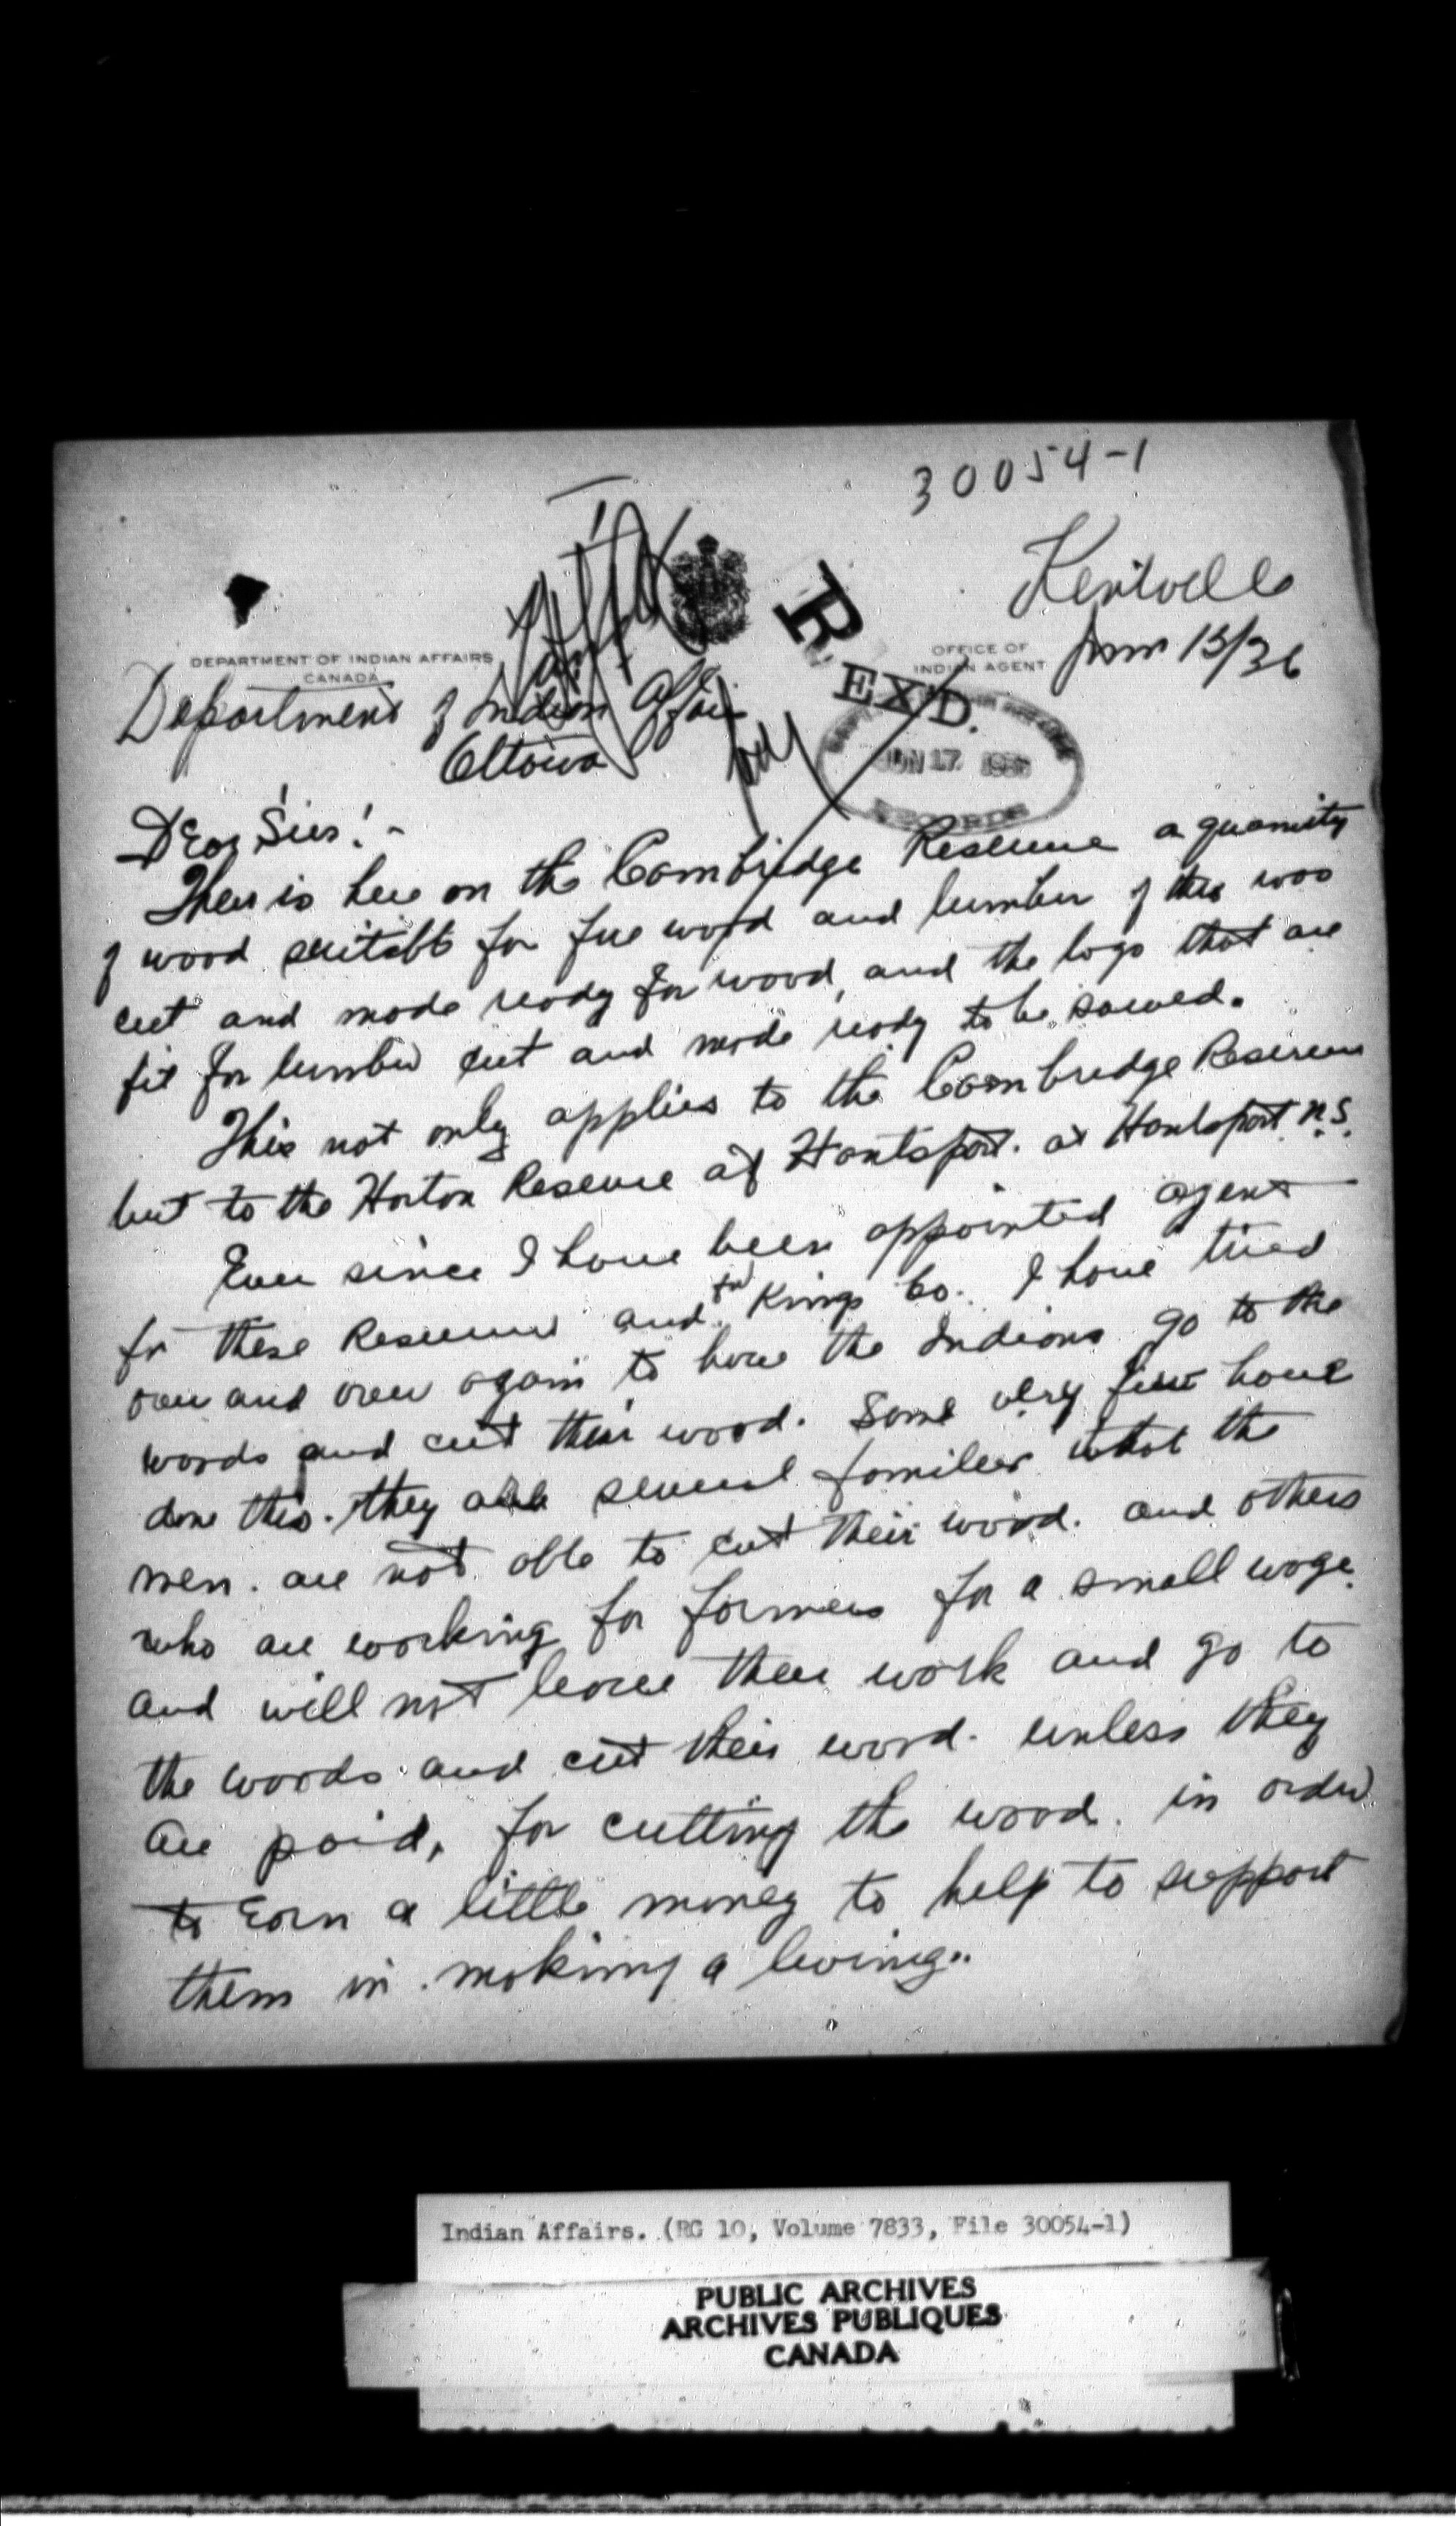 30054-1
Kentville
June 15/36
DEPARTMENT OF INDIAN AFFAIRS
CANADA
OFFICE OF
INDIAN AGENT
R
EX'D.
JUN 17 1936
RECORDS
Department of Indian Affairs
Ottawa
Dear Sirs! -
There is here on the Cambridge Reserve a quanity
of wood suitable for fire wood and lumber if this was
cut and made ready for wood, and the logs that are
fit for lumber cut and made ready to be sawed.
This not only applies to the Cambridge Reserve
but to the Horton Reserve at Hantsport. at Hantsport N.S.
Ever since I have been appointed agent
for these Reserves and for Kings Co. I have tried
over and over again to have the Indians go to the
woods and cut their wood. Some very few have
done this. they are several families what the
men. are not able to cut their wood. and others
who are working for farmers for a small wage.
and will not leave there work and go to
the woods and cut their wood. unless they
are paid, for cutting the wood. in order
to Earn a little money to help to support
them in making a living..
Indian Affairs. (RG 10, Volume 7833, File 30054-1)
PUBLIC ARCHIVES
ARCHIVES PUBLIQUES
CANADA